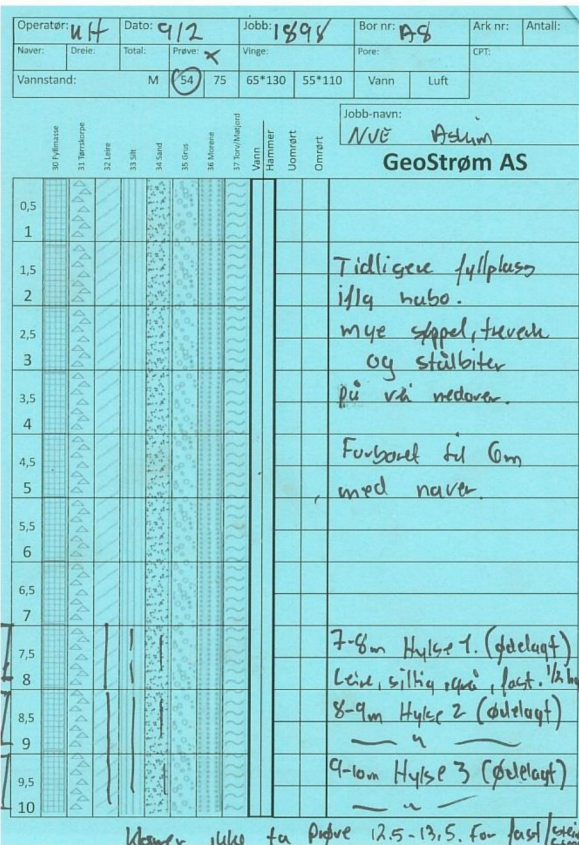 Operatør: UH Dato: 9/2 Jobb: 1898 Bor nr: A8 Ark nr: Antall:
Naver: Dreie: Total: Prøve: x Vinge: Pore: CPT:
Vannstand: M 54 75 65*130 55*110 Vann Luft
Jobb-navn:
NVE Askim
GeoStrøm AS
30 Fyllmasse 31 Tørrskorpe 32 Leire 33 Silt 34 Sand 35 Grus 36 Morene 37 Torv/Matjord Vann Hammer Uomrørt Omrørt
0,5
1
1,5
Tidligere fyllplass
2
iflg nabo.
2,5
mye søppel, treverk
3
og stålbiter
3,5
på vei nedover.
4
4,5
Forboret til 6m
5
med naver.
5,5
6
6,5
7
7-8m Hylse 1. (ødelagt)
7,5
Leire, siltig, grå, fast.
8
8-9m Hylse 2 (ødelagt)
8,5
— " —
9
9-10m Hylse 3 (ødelagt)
9,5
— " —
10
ikke ta Prøve 12.5-13,5. For fast/